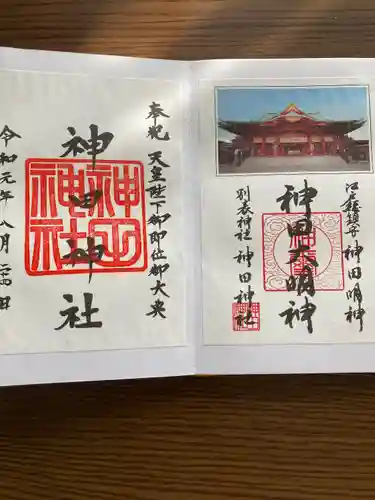 江戸総鎮守 神田明神
神田大明神
別表神社 神田神社
奉祝 天皇陛下御即位御大典
神田神社
令和元年八月二十四日